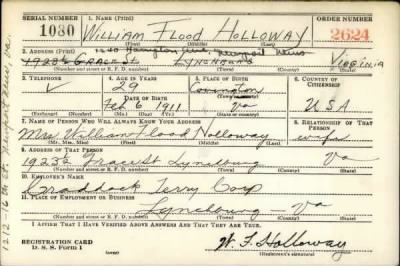 SERIAL NUMBER
1080
1. NAME (Print)
WILLIAM FLOOD HOLLOWAY
(First) (Middle) (Last)
ORDER NUMBER
2624
2. ADDRESS (Print)
1240 Hampton Ave Newport News
1923½ GRACE ST. LYNCHBURG VIRGINIA
(Number and street or R. F. D. number) (Town) (County) (State)
3. TELEPHONE
4. AGE IN YEARS
29
5. PLACE OF BIRTH
Covington
6. COUNTRY OF CITIZENSHIP
DATE OF BIRTH
Feb 6 1911
(Mo.) (Day) (Yr.)
(Town or county)
Va
(State or country)
USA
7. NAME OF PERSON WHO WILL ALWAYS KNOW YOUR ADDRESS
Mrs William Flood Holloway
(Mr., Mrs., Miss) (First) (Middle) (Last)
8. RELATIONSHIP OF THAT PERSON
wife
9. ADDRESS OF THAT PERSON
1923½ Grace St Lynchburg Va
(Number and street or R. F. D. number) (Town) (County) (State)
10. EMPLOYER'S NAME
Craddock Terry Corp
11. PLACE OF EMPLOYMENT OR BUSINESS
Lynchburg - Va
(Number and street or R. F. D. number) (Town) (County) (State)
I AFFIRM THAT I HAVE VERIFIED ABOVE ANSWERS AND THAT THEY ARE TRUE.
REGISTRATION CARD
D. S. S. FORM 1
W. F. Holloway
(Registrant's signature)
1212-16th St. Newport News, Va.